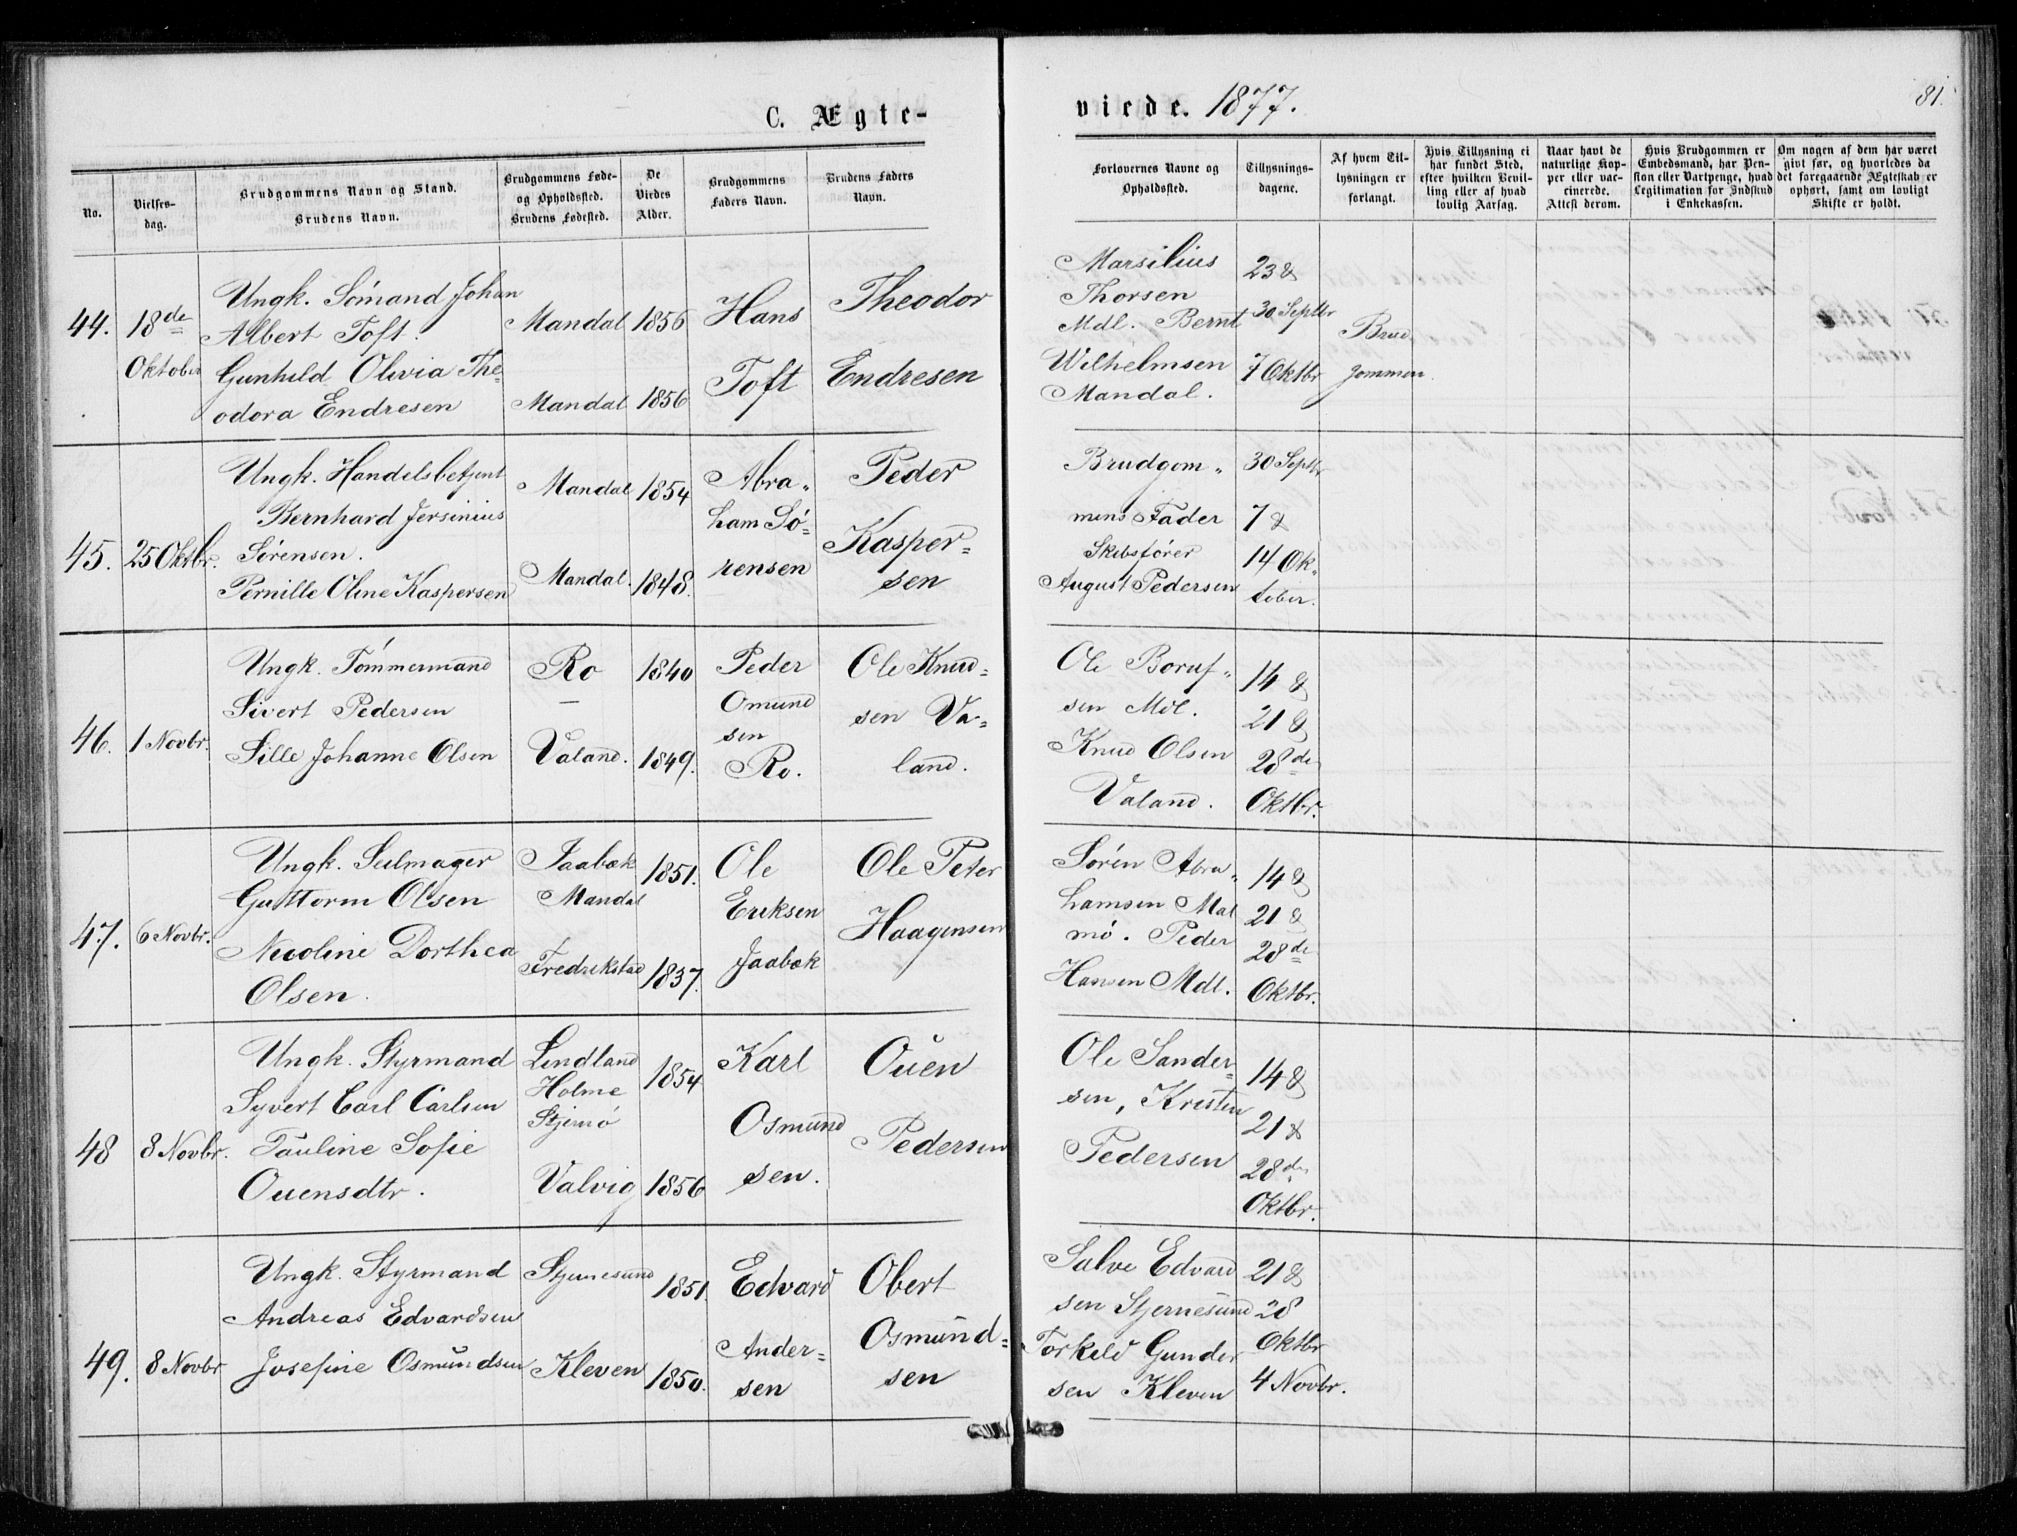 C. Ægte-
viede. 1877.
81.
No.
Vielses-
dag.
Brudgommens Navn og Stand.
Brudens Navn.
Brudgommens Føde-
og Opholdssted.
Brudens Fødested.
De
Viedes
Alder.
Brudgommens
Faders Navn.
Brudens Faders
Navn.
Forlovernes Navne og
Opholdssted.
Tillysnings-
dagene.
Af hvem Til-
lysningen er
forlangt.
Hvis Tillysning ei
har fundet Sted,
efter hvilken Bevil-
ling eller af hvad
lovlig Aarsag.
Naar havt de
naturlige Kop-
per eller vac-
cinerede.
Attest derom.
Hvis Brudgommen er
Embedsmand, har Pen-
sion eller Vartpenge, hvad
Legitimation for Indskud
i Enkekassen.
Om nogen af dem har været
givt før, og hvorledes da
det foregaaende Ægteskab er
ophørt, samt om lovligt
Skifte er holdt.
44.
18de
Oktober
Ungk. Sømand Johan
Albert Toft.
Gunhild Olivia The-
odora Endresen
Mandal
Mandal
1856
1856
Hans
Toft
Theodor
Endresen
Marsilius
Thorsen
Mdl. Bernt
Wilhelmsen
Mandal.
23 &
30 Septbr
7 Oktbr
Brud
gommen.
45.
25 Oktbr.
Ungk. Handelsbetjent
Bernhard Jersinius
Sørensen.
Pernille Oline Kaspersen
Mandal
Mandal.
1854
1848.
Abra-
ham Sø-
rensen
Peder
Kasper-
sen
Brudgom-
mens Fader
Skibsfører
August Pedersen
30 Septbr
7 &
14 Ok-
tober.
46.
1 Novbr.
Ungk. Tømmermand
Sivert Pedersen
Sille Johanne Olsen
Ro
–
Valand.
1840
1849.
Peder
Omund
sen
Ro.
Ole Knud-
sen Va-
land.
Ole Boruf-
sen Mdl.
Knud Olsen
Valand.
14 &
21 &
28de
Oktbr.
47.
6 Novbr.
Ungk. Seilmager
Guttorm Olsen
Nicoline Dorthea
Olsen.
Jaabæk
Mandal
Fredrikstad
1851.
1837.
Ole
Eriksen
Jaabæk
Ole Peter
Haagensen
Sørén Abra-
hamsen Mal
mø. Peder
Hansen Mdl.
14 &
21 &
28de
Oktbr.
48
8 Novbr.
Ungk. Styrmand
Syvert Carl Carlsen
Pauline Sofie
Ouensdtr.
Lindland
Holme
Stjernø
Valvig
1854
1856
Karl
Osmund
sen.
Ouen
Pedersen
Ole Sander-
sen, Kristen
Pedersen
14 &
21 &
28de
Oktbr.
49.
8 Novbr
Ungk. Styrmand
Andreas Edvardsen
Josefine Osmundsen
Stjernesund
Kleven
1851.
1850.
Edvard
Ander-
sen
Obert
Osmund-
sen
Salve Edvard
sen Stjernesund
Torkild Gunder
sen Kleven
21 &
28
Oktbr
4 Novbr.